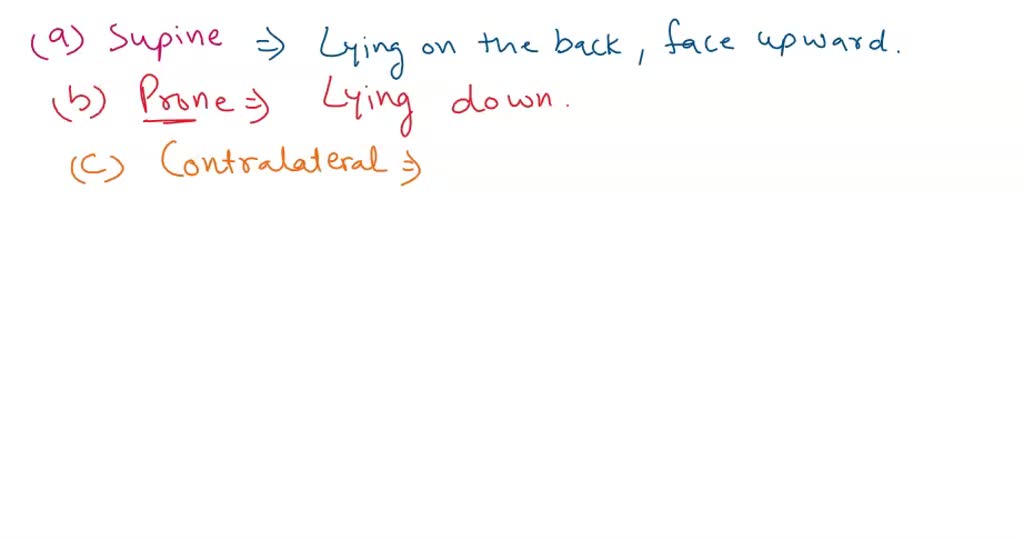 (a) Supine ⇒ Lying on the back, face upward.
(b) Prone ⇒ Lying down.
(c) Contralateral ⇒